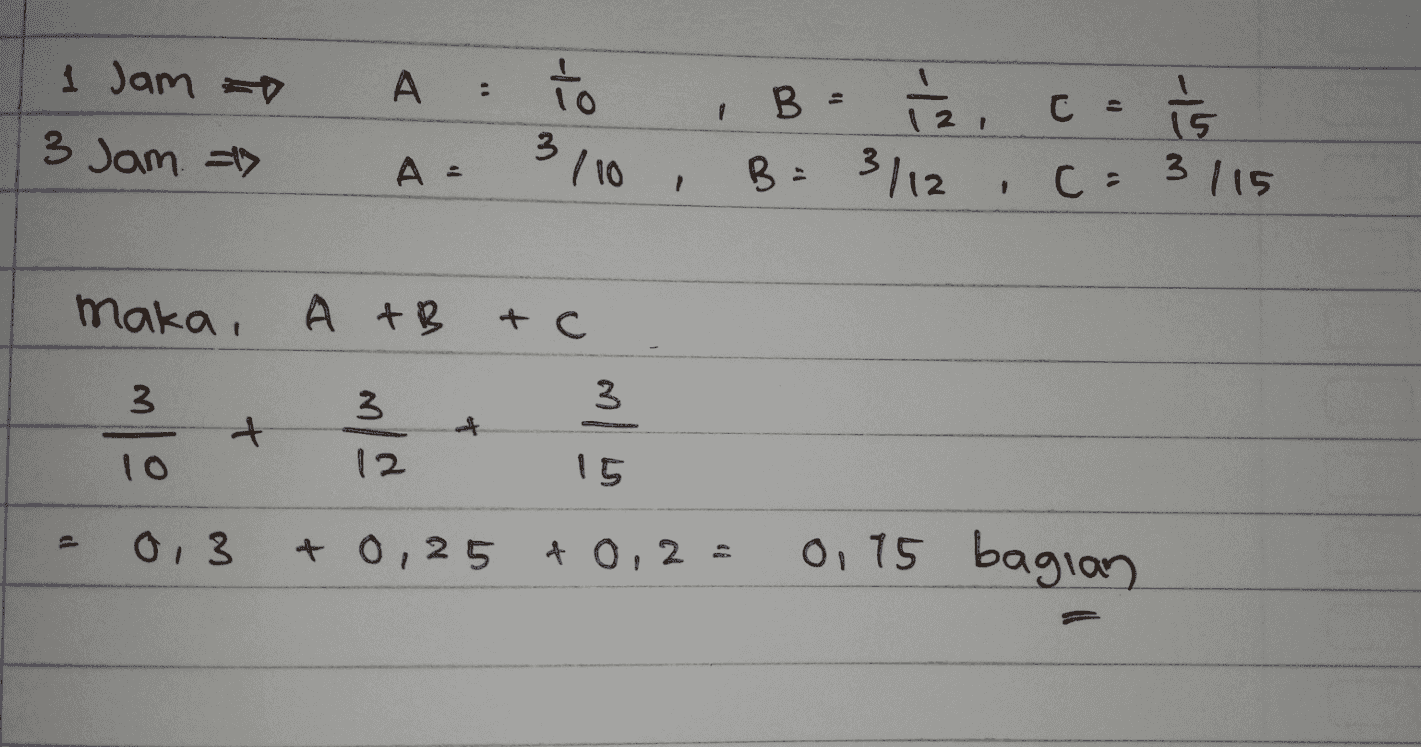 1 Jam => A : 1/10 , B = 1/12, C = 1/15
3 Jam. => A = 3/10 , B = 3/12 , C = 3/15
maka, A + B + C
3/10 + 3/12 + 3/15
= 0,3 + 0,25 + 0,2 = 0,75 bagian